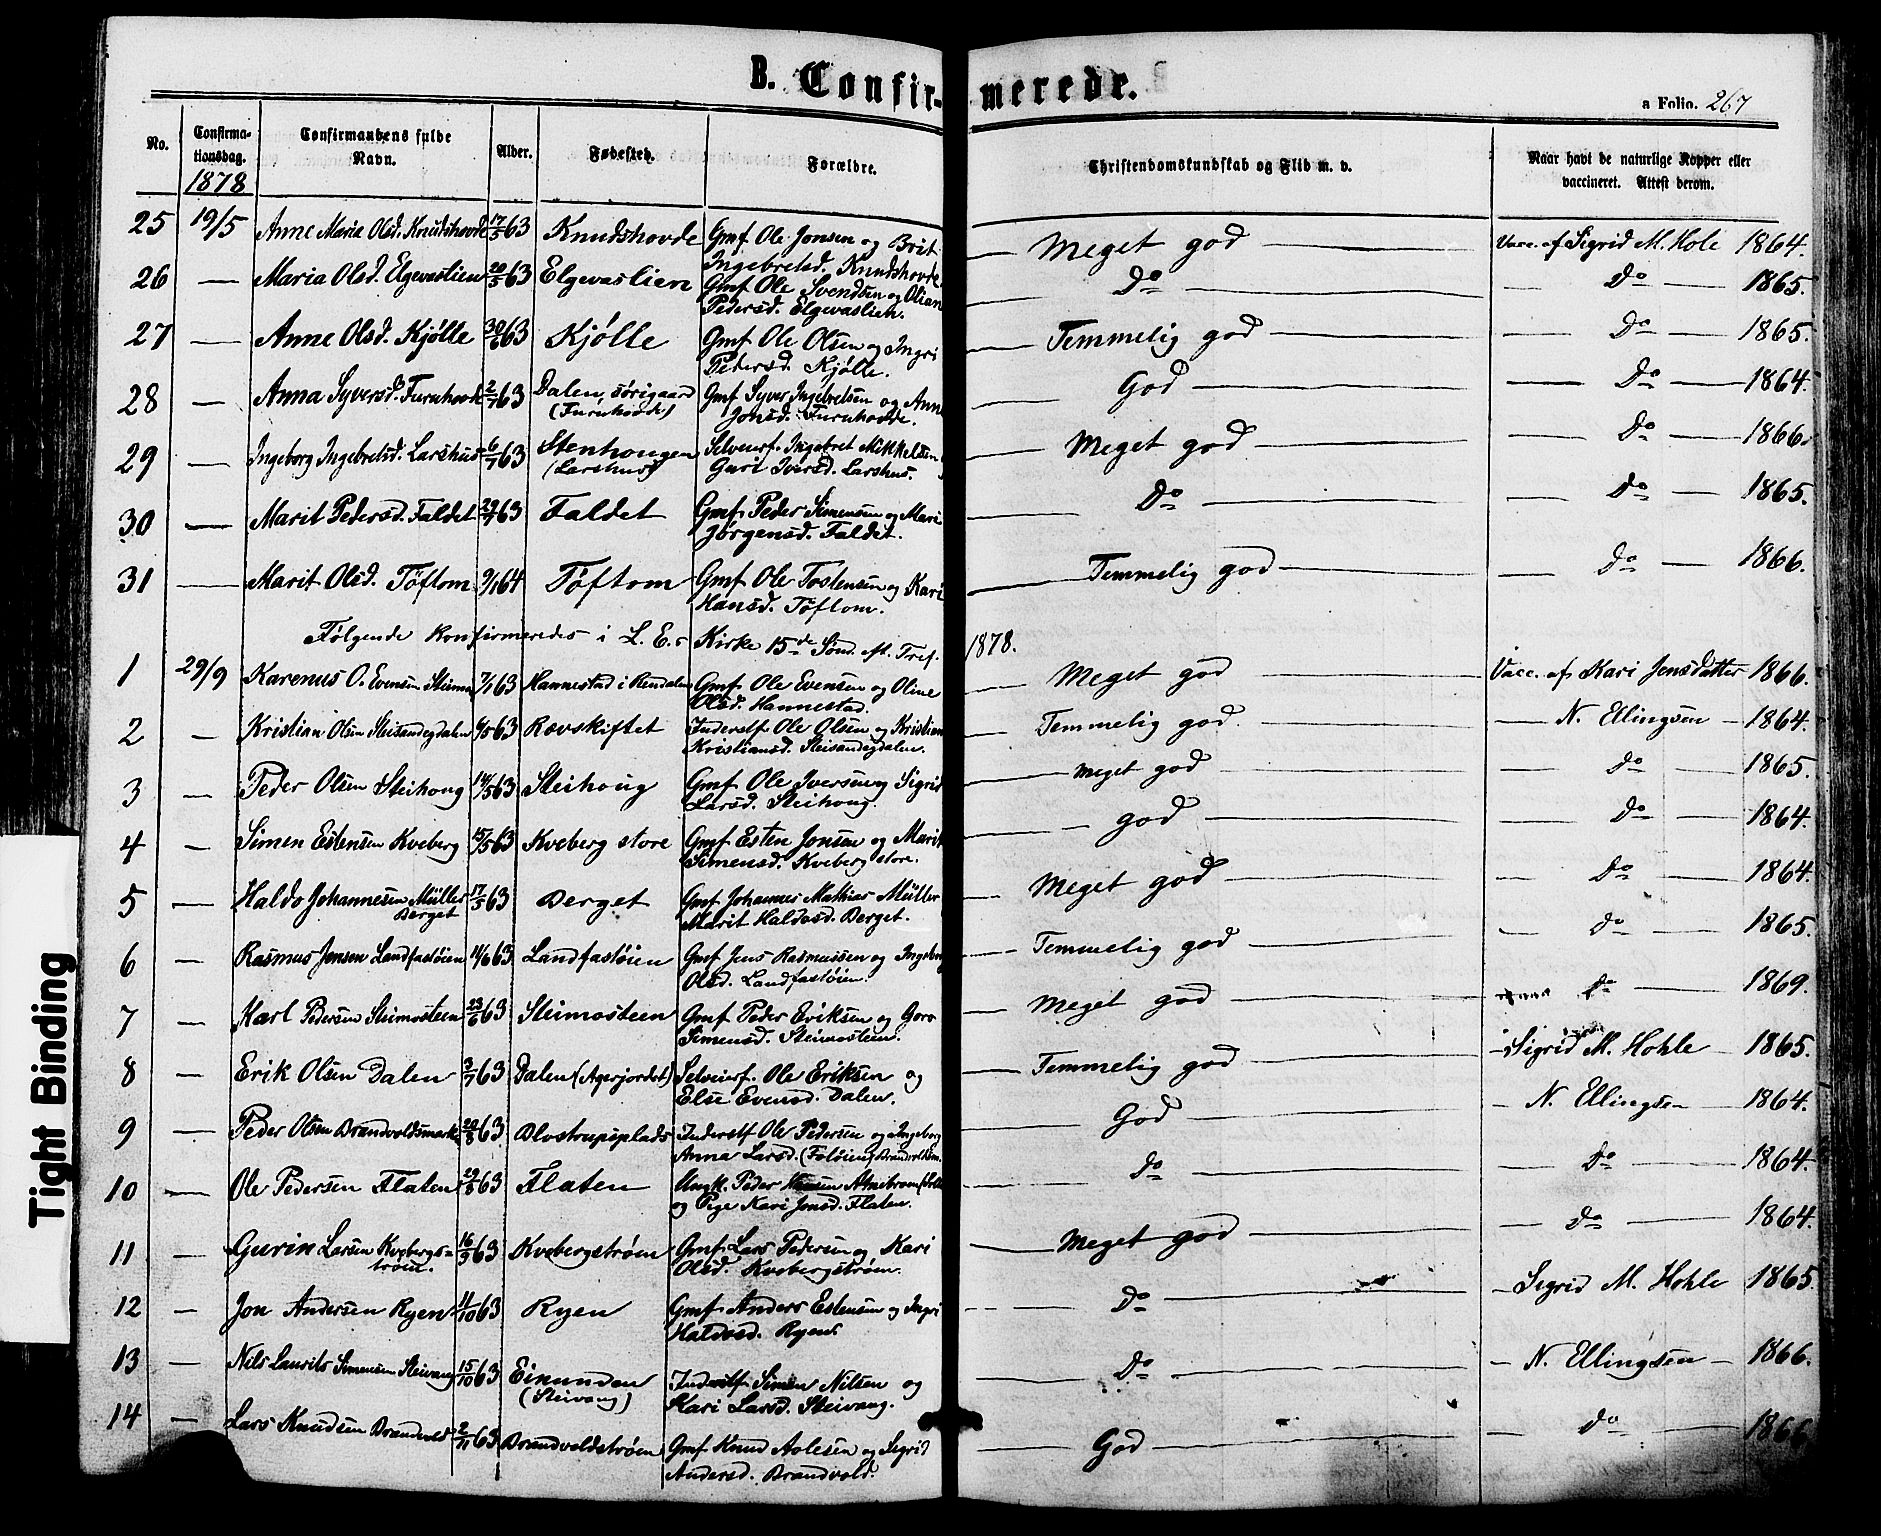 B. Confir- merede.
a Folio. 267
No. Confirma-tionsdag. Confirmandens fulde Navn. Alder. Fødested. Forældre. Christendomskundskab og Flid m. v. Naar havt de naturlige Kopper eller vaccineret. Attest derom.
1878
25 19/5 Anne Marie Olsd. Knudshovde 17/5 63 Knudshovde Gmf Ole Jonsen og Brit Meget god Vacc. af Sigrid M. Hole 1864.
Ingebretsd. Knudshovde.
26 — Maria Olsd. Elgevaslien 20/5 63 Elgevaslien Gmf Ole Svendsen og Olian Do Do 1865.
Pedersd. Elgevaslien.
27 — Anne Olsd. Kjølle 30/6 63 Kjølle Gmf Ole Olsen og Ingri Temmelig god Do 1865.
Pedersd. Kjølle.
28 — Anna Syversd. Furuhovde 2/7 63 Dalen, sørigaard Gmf Syver Ingebretsen og Anne God Do 1864.
(Furuhovde) Jonsd. Furuhovde.
29 — Ingeborg Ingebretsd. Larshus 6/7 63 Stenhougen Selveierf. Ingebret Mikkelsen Meget god Do 1866.
(Larshus) Guri Iversd. Larshus.
30 — Marit Pedersd. Faldet 29/7 63 Faldet Gmf Peder Simensen og Mari Do Do 1865.
Jørgensd. Faldet.
31 — Marit Olsd. Tøftom 9/1 64 Tøftom Gmf Ole Tostensen og Kari Temmelig god Do 1866.
Hansd. Tøftom.
Følgende konfirmeredes i L. E.s Kirke 15de Sønd. eft. Tref. 1878.
1 29/9 Karenus O. Evensen Steimo 7/1 63 Hannestad i Rendalen Gmf Ole Evensen og Oline Meget god Vacc. af Kari Jensdatter 1866.
Olsd. Hannestad.
2 — Kristian Olsen Steisandegdalen 6/5 63 Rævskiftet Inderstf Ole Olsen og Kristian Temmelig god. N. Ellingsen 1864.
Kristiansd. Steisandegdalen.
3 — Peder Olsen Steihoug 14/5 63 Steihoug Gmf Ole Iversen og Sigrid Meget god Do 1865.
Larsd. Steihoug.
4 — Simen Estensen Kveberg 15/5 63 Kveberg store Gmf Esten Jonsen og Marit god Do 1864.
Simensd. Kveberg store.
5 — Haldo Johannesen Müller 17/5 63 Berget Gmf Johannes Mathias Müller Meget god Do 1864.
Berget Marit Haldosd. Berget.
6 — Rasmus Jensen Landfastøien 14/6 63 Landfastøien Gmf Jens Rasmussen og Ingeborg Temmelig god do 1865.
Olsd. Landfastøien.
7 — Karl Pedersen Steimosteen 23/6 63 Steimosteen Gmf Peder Eriksen og Goro Meget god Do 1869.
Simensd. Steimosteen.
8 — Erik Olsen Dalen 3/7 63 Dalen (Agerjordet) Selveierf. Ole Eriksen og Temmelig god Sigrid M. Hohle 1865.
Else Evensd. Dalen.
9 — Peder Olsen Brandvoldsmarke 20/8 63 Blostrupsplads Inderstf Ole Pedersen og Ingeborg God N. Ellingsen 1864.
Anna Larsd.
10 — Ole Pedersen Flaten 29/8 63 Flaten Ungk. Peder Do Do 1864.
og Pige Kari Jonsd. Flaten.
11 — Gurin Larsen Kvebergs- 16/9 63 Kvebergstrøen Gmf Lars Pedersen og Kari Meget god Do 1864.
trøen. Olsd. Kvebergstrøen.
12 — Jon Andersen Ryen 11/10 63 Ryen Gmf Anders Estensen og Ingri Do Sigrid M. Hohle 1865
Haldosd. Ryen.
13 — Nils Laurits Simensen Steivang 15/10 63 Einunden Inderstf Simen Nilsen og Do N. Ellingsen 1866.
(Steivang) Kari Larsd. Steivang.
14 — Lars Knudsen Brandvold 2/11 63 Brandvoldstrøen Gmf Knud Aolesen og Sigrid God Do 1866
Andersd. Brandvold.
Tight Binding